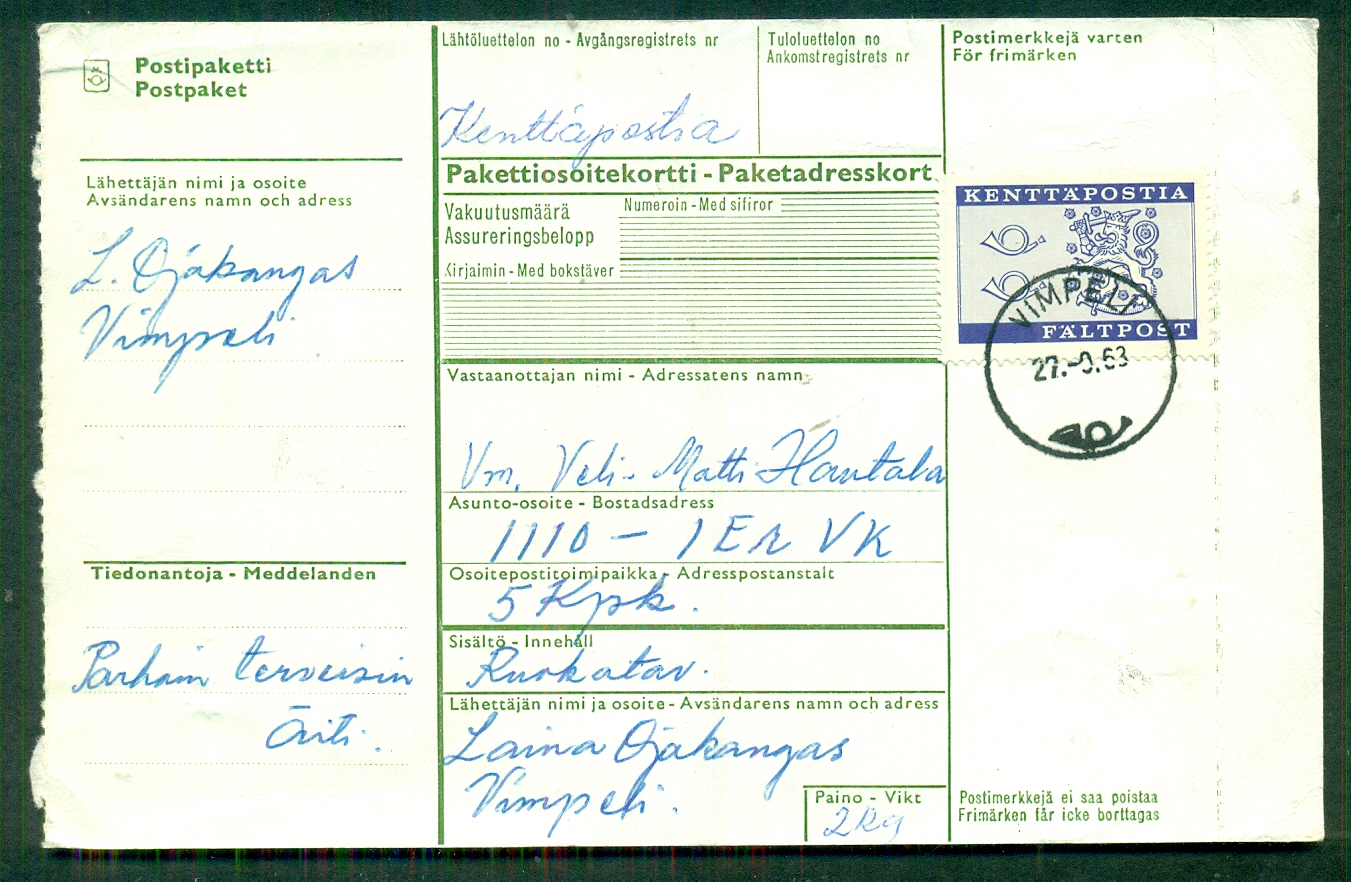 Postipaketti
Postpaket
Lähettäjän nimi ja osoite
Avsändarens namn och adress
L. Ojakangas
Vimpeli
Tiedonantoja - Meddelanden
Parhain terveisin
Äiti.
Lähtöluettelon no - Avgångsregistrets nr
Kenttäpostia
Tuloluettelon no
Ankomstregistrets nr
Pakettiosoitekortti - Paketadresskort
Vakuutusmäärä
Assureringsbelopp
Numeroin - Med siffror
Kirjaimin - Med bokstäver
Vastaanottajan nimi - Adressatens namn
Vm. Veli-Matti Hautala
Asunto-osoite - Bostadsadress
1110 - 1 Er VK
Osoitepostitoimipaikka - Adresspostanstalt
5 Kpk.
Sisältö - Innehåll
Ruokatav.
Lähettäjän nimi ja osoite - Avsändarens namn och adress
Laina Ojakangas
Vimpeli.
Paino - Vikt
2kg
Postimerkkejä varten
För frimärken
KENTTÄPOSTIA
FÄLTPOST
VIMPELI
27.-9.63
Postimerkkejä ei saa poistaa
Frimärken får icke borttagas